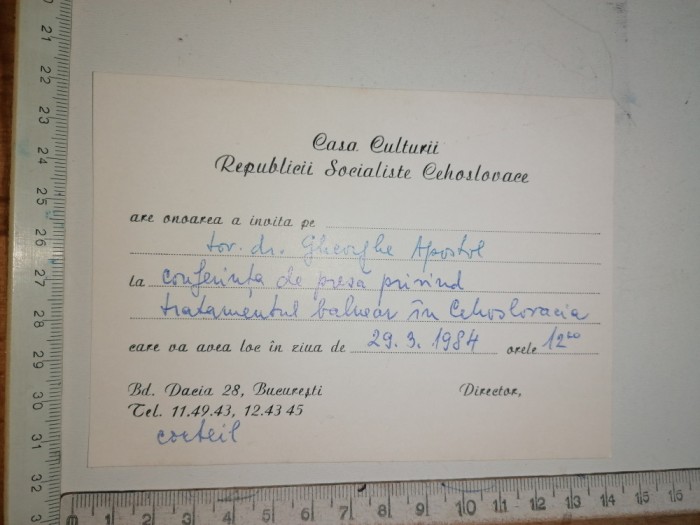 Casa Culturii
Republicii Socialiste Cehoslovace
are onoarea a invita pe
tov. dr. Gheorghe Apostol
la conferința de presă privind
tratamentul balnear în Cehoslovacia
care va avea loc în ziua de 29.3.1984 orele 12⁰⁰
Bd. Dacia 28, București Director,
Tel. 11.49.43, 12.43 45
cocteil
21
22
23
24
25
26
27
28
29
30
31
32
0 1 2 3 4 5 6 7 8 9 10 11 12 13 14